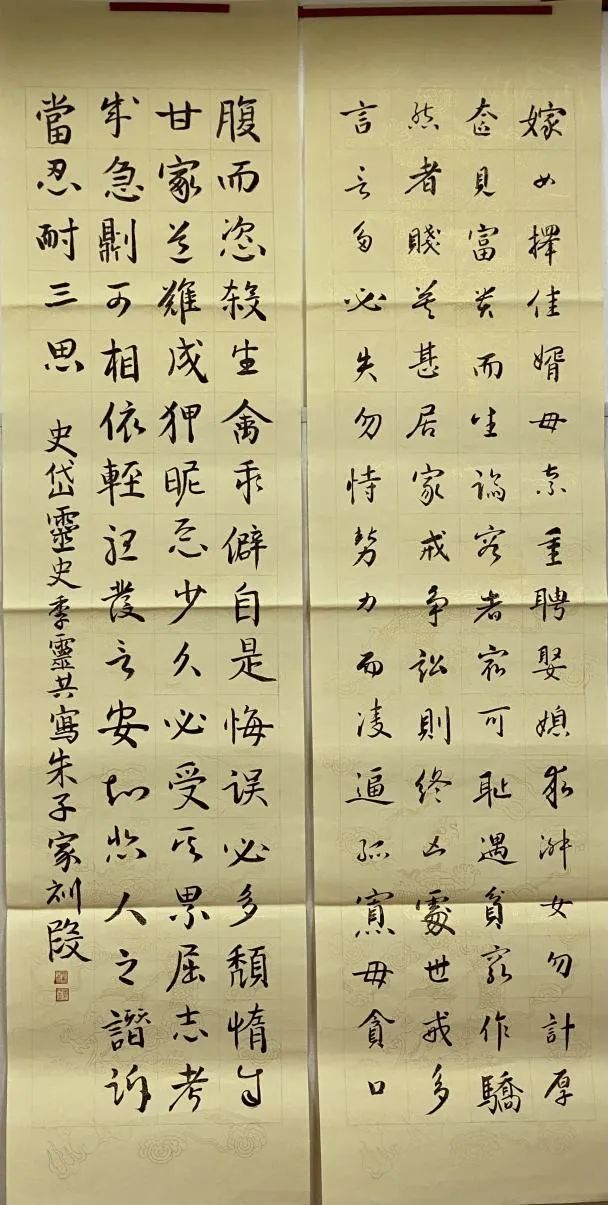 嫁女擇佳婿毋索重聘娶媳求淑女勿計厚
奩見富貴而生謟容者寂可恥遇貧窮作驕
態者賤莫甚居家戒爭訟則終凶處世戒多
言言多必失勿恃勢力而凌逼孤寡毋貪口
腹而恣殺生禽乖僻自是悔误必多頹惰自
甘家道難成狎昵惡少久必受其累屈志老
成急則可相依輕聽發言安知非人之譖訴
當忍耐三思
史岱靈史季靈共寫朱子家訓段